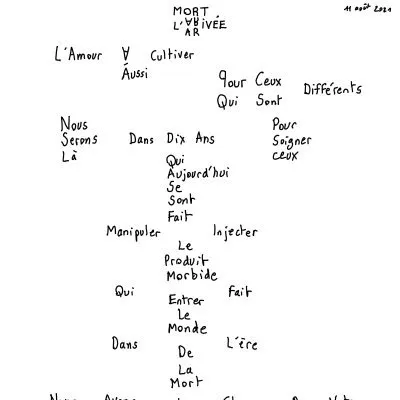 MORT
11 août 2021
L'ARIVÉE
AR
L'Amour À Cultiver
Aussi
Pour Ceux
Différents
Qui Sont
Nous
Pour
Serons Dans Dix Ans
Soigner
Là
ceux
Qui
Aujourd'hui
Se
Sont
Fait
Manipuler Injecter
Le
Produit
Morbide
Qui Fait
Entrer
Le
Monde
Dans L'ère
De
La
Mort